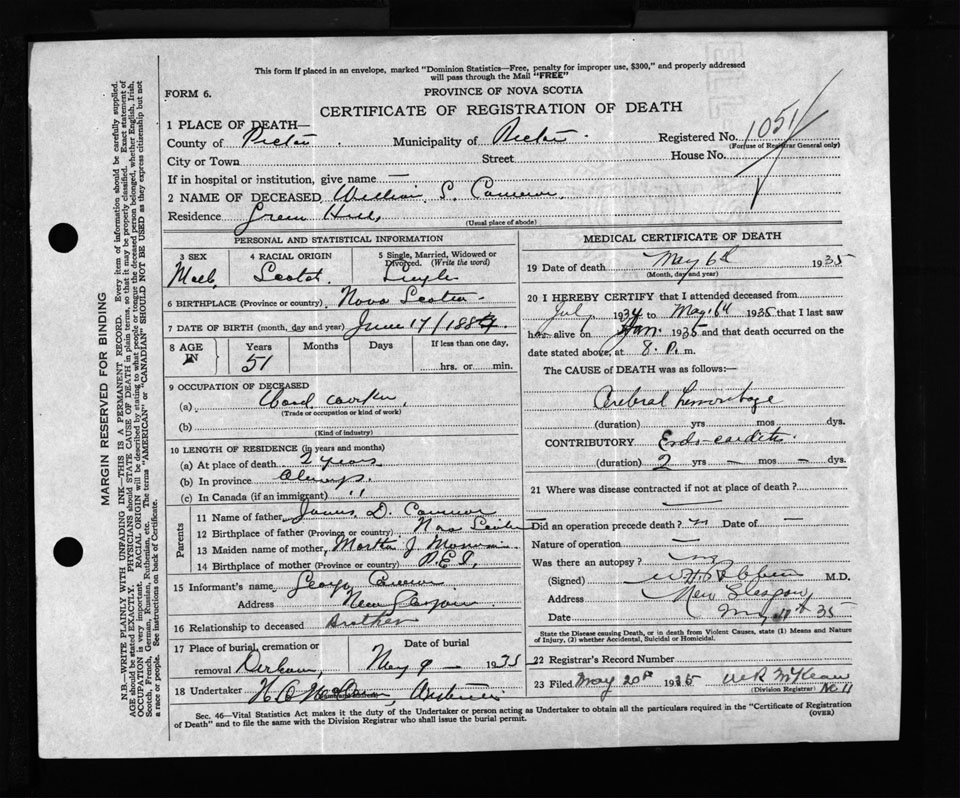 This form if placed in an envelope, marked "Dominion Statistics—Free, penalty for improper use, $300," and properly addressed
will pass through the Mail "FREE"
FORM 6.
PROVINCE OF NOVA SCOTIA
CERTIFICATE OF REGISTRATION OF DEATH
1 PLACE OF DEATH—
County of Pictou Municipality of Pictou Registered No. 1051
(For use of Registrar General only)
City or Town Street House No.
If in hospital or institution, give name —
2 NAME OF DECEASED William S. Cameron
Residence Green Hill
(Usual place of abode)
PERSONAL AND STATISTICAL INFORMATION
3 SEX 4 RACIAL ORIGIN 5 Single, Married, Widowed or Divorced. (Write the word)
Male Scotch Single
6 BIRTHPLACE (Province or country) Nova Scotia
7 DATE OF BIRTH (month, day and year) June 17/188
8 AGE IN Years Months Days If less than one day,
51 hrs. or min.
9 OCCUPATION OF DECEASED
(a) Wood worker
(Trade or occupation or kind of work)
(b)
(Kind of industry)
10 LENGTH OF RESIDENCE (in years and months)
(a) At place of death 2 years
(b) In province always
(c) In Canada (if an immigrant) "
Parents
11 Name of father James D. Cameron
12 Birthplace of father (Province or country) Nova Scotia
13 Maiden name of mother Martha J
14 Birthplace of mother (Province or country) P.E.I.
15 Informant's name George Cameron
Address New Glasgow
16 Relationship to deceased Brother
17 Place of burial, cremation or removal Durham Date of burial May 9 — 1935
18 Undertaker
MEDICAL CERTIFICATE OF DEATH
19 Date of death May 6th 1935
(Month, day and year)
20 I HEREBY CERTIFY that I attended deceased from
July 1934 to May 6th 1935 that I last saw
h alive on Jan. 1935 and that death occurred on
date stated above, at 8. P. m.
The CAUSE of DEATH was as follows:—
Cerebral hemorrhage
(duration) yrs mos dys.
CONTRIBUTORY Endo-carditis
(duration) 2 yrs — mos — dys.
21 Where was disease contracted if not at place of death?
—
Did an operation precede death? no Date of —
Nature of operation —
Was there an autopsy? no
(Signed) M.D.
Address New Glasgow
Date May 35
State the Disease causing Death, or in death from Violent Causes, state (1) Means and Nature
of Injury, (2) whether Accidental, Suicidal or Homicidal.
22 Registrar's Record Number
23 Filed May 20th 1935 McKean
(Division Registrar) No 11
Sec. 46—Vital Statistics Act makes it the duty of the Undertaker or person acting as Undertaker to obtain all the particulars required in the "Certificate of Registration
of Death" and to file the same with the Division Registrar who shall issue the burial permit.
(OVER)
MARGIN RESERVED FOR BINDING
N.B.—WRITE PLAINLY WITH UNFADING INK—THIS IS A PERMANENT RECORD. Every item of information should be carefully supplied.
AGE should be stated EXACTLY. PHYSICIANS should STATE CAUSE OF DEATH in plain terms, so that it may be properly classified. Exact statement of
OCCUPATION is very important. RACIAL ORIGIN will be described by stating to what people or tongue the deceased person belonged, whether English, Irish,
Scotch, French, German, Russian, Ruthenian, etc. The terms "AMERICAN" or "CANADIAN" SHOULD NOT BE USED as they express citizenship but not
a race or people. See instructions on back of Certificate.